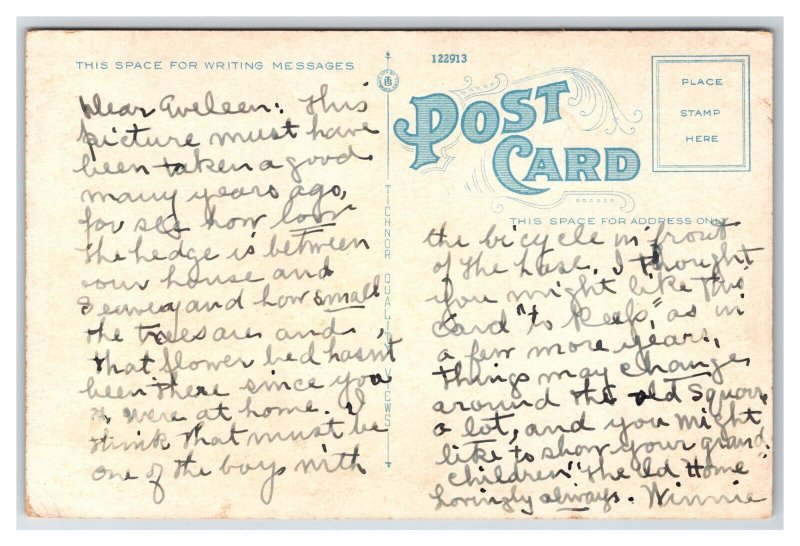 THIS SPACE FOR WRITING MESSAGES
Dear Aveleen: This
picture must have
been taken a good
many years ago,
for see how low
the hedge is between
our house and
and how small
the trees are and
that flower bed hasn't
been there since you
were at home. I
think that must be
one of the boys with
TICHNOR QUALITY VIEWS
122913
POST
CARD
PLACE
STAMP
HERE
THIS SPACE FOR ADDRESS ONLY
the bicycle in front
of the house. I thought
you might like this
card "to keep," as in
a few more years,
things may change
around the old Square
a lot, and you might
like to show your grand
children "The Old Home"
Lovingly always. Winnie